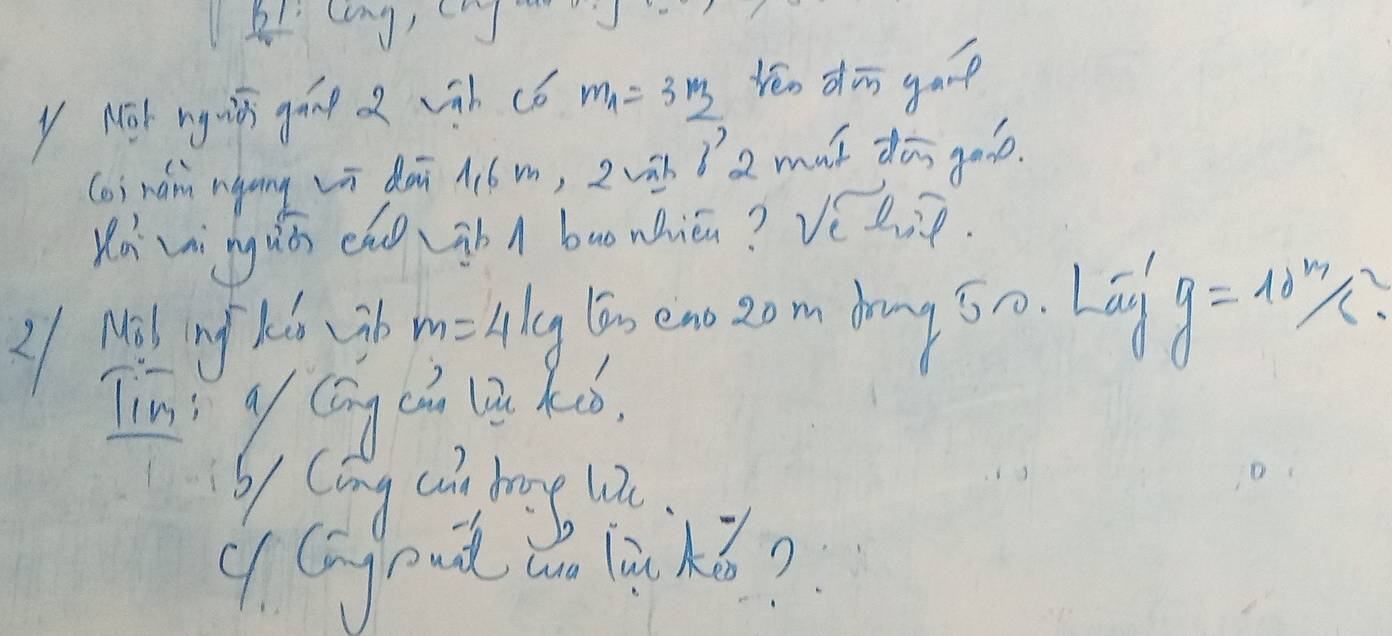 1/ Một người gánh 2 vật có m1 = 3m2 trên đòn gánh
coi nằm ngang và dài 1,6 m, 2 vật ở 2 mút đòn gánh.
Hỏi vai người cách vật 1 bao nhiêu? Vẽ hình.
2/ Một ng kéo vật m = 4kg lên cao 20 m trong 5s. Lấy g = 10 m/s².
Tìm: a/ Công của lực kéo.
b/ Công của trọng lực.
c/ Công suất của lực kéo?